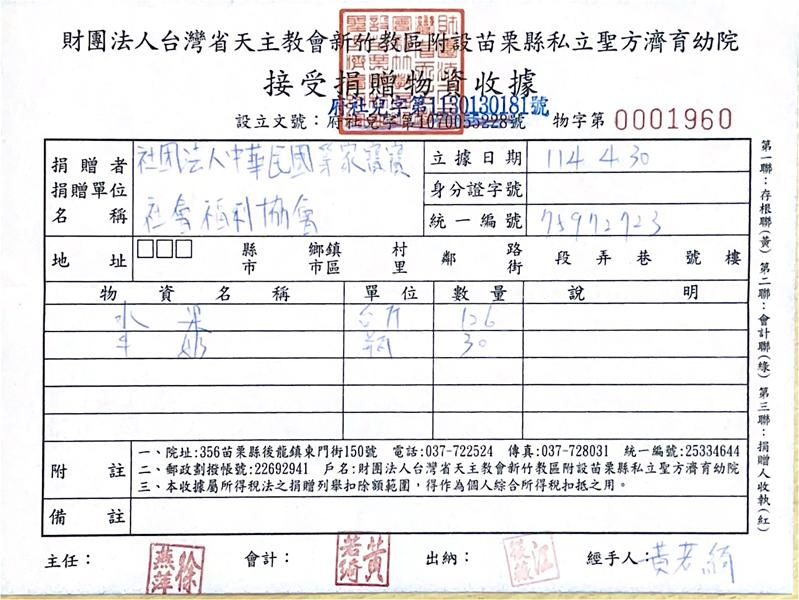 財團法人台灣省天主教會新竹教區附設苗栗縣私立聖方濟育幼院
接受捐贈物資收據
府社兒字第1130130181號
設立文號：府社兒字第1070055228號 物字第 0001960
捐贈者
捐贈單位
名稱
社团法人中華民國等家寶寶
社會福利協會
立據日期 114 4 30
身分證字號
統一編號 75972723
地址 縣市 鄉鎮市區 村里 鄰 路街 段 弄 巷 號 樓
物資名稱 單位 數量 說明
水果 台斤 126
牛奶 瓶 30
附註
一、院址:356苗栗縣後龍鎮東門街150號 電話:037-722524 傳真:037-728031 統一編號:25334644
二、郵政劃撥帳號:22692941 戶名:財團法人台灣省天主教會新竹教區附設苗栗縣私立聖方濟育幼院
三、本收據屬所得稅法之捐贈列舉扣除額範圍，得作為個人綜合所得稅扣抵之用。
備註
主任： 徐燕萍 會計： 黃若琦 出納： 江 經手人： 黃若綺
第一聯：存根聯(黃) 第二聯：會計聯(綠) 第三聯：捐贈人收執(紅)